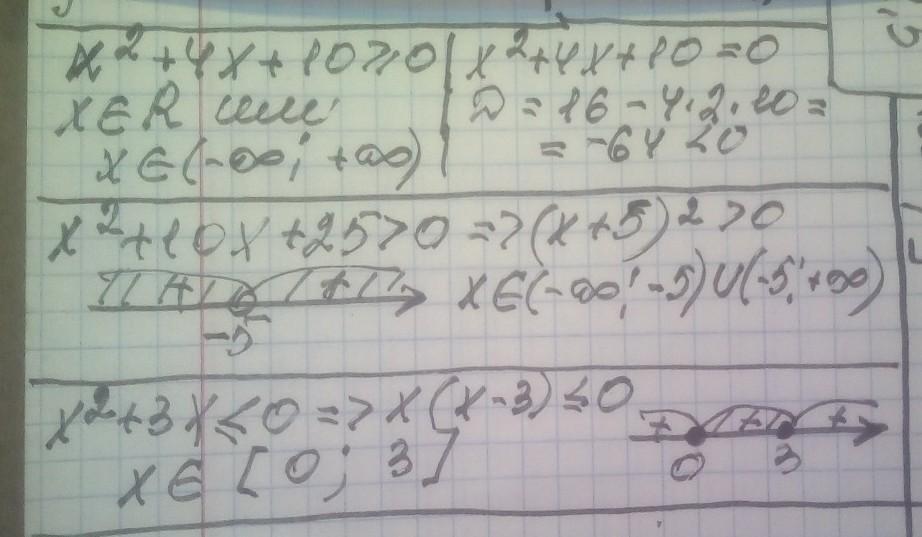 x²+4x+10≥0
x∈R или
x∈(-∞; +∞)
x²+4x+10=0
D = 16 - 4·2·10 =
= -64 <0
x²+10x+25>0 => (x+5)²>0
+ +
-5
x∈(-∞; -5)∪(-5; +∞)
x²+3x≤0 => x(x-3)≤0
x∈ [0; 3]
+ + +
0 3